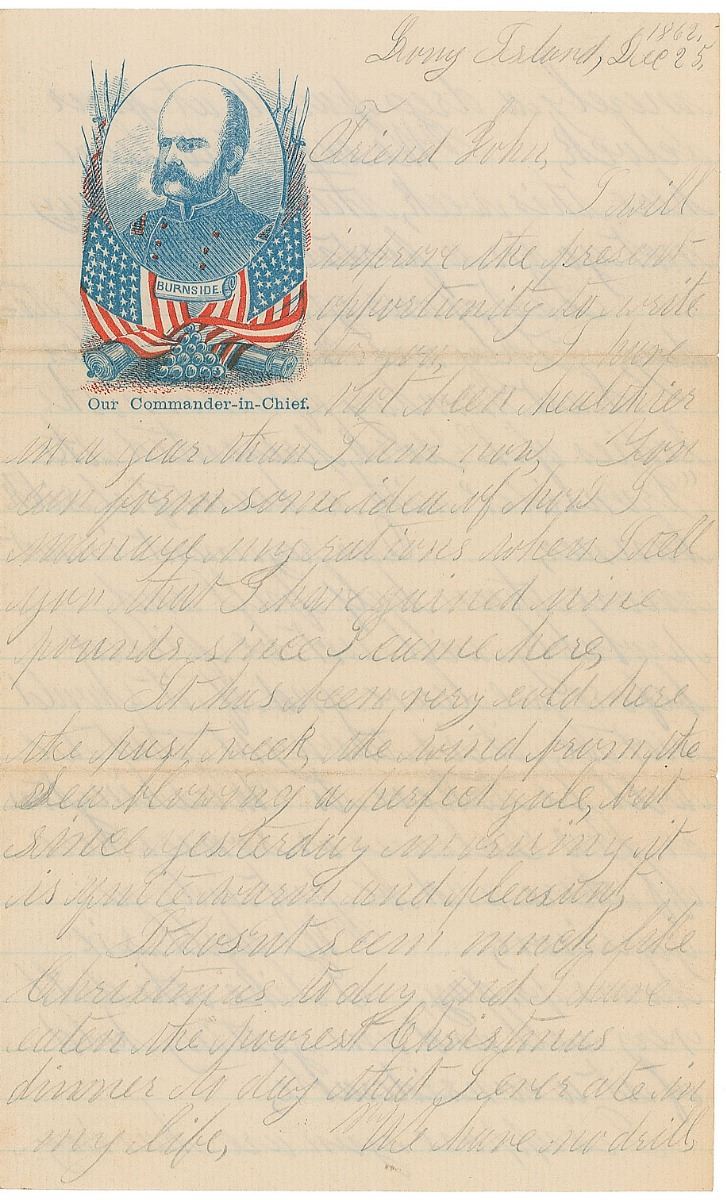 Long Island, Dec 25, 1862.
Friend John,
I will
improve the present
opportunity to write
to you. I have
BURNSIDE.
Our Commander-in-Chief.
not been healthier
in a year than I am now, You
can form some idea of how I
manage my rations when I tell
you that I have gained nine
pounds since I came here,
It has been very cold here
the past week, the wind from the
Sea blowing a perfect gale, but
since yesterday morning it
is quite warm and pleasant,
It dosnt seem much like
Christmas to day, and I have
eaten the poorest Christmas
dinner to day that I ever ate in
my life, We have no drill